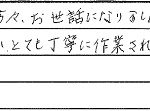 々、お世話になりまし
い、とても丁寧に作業され